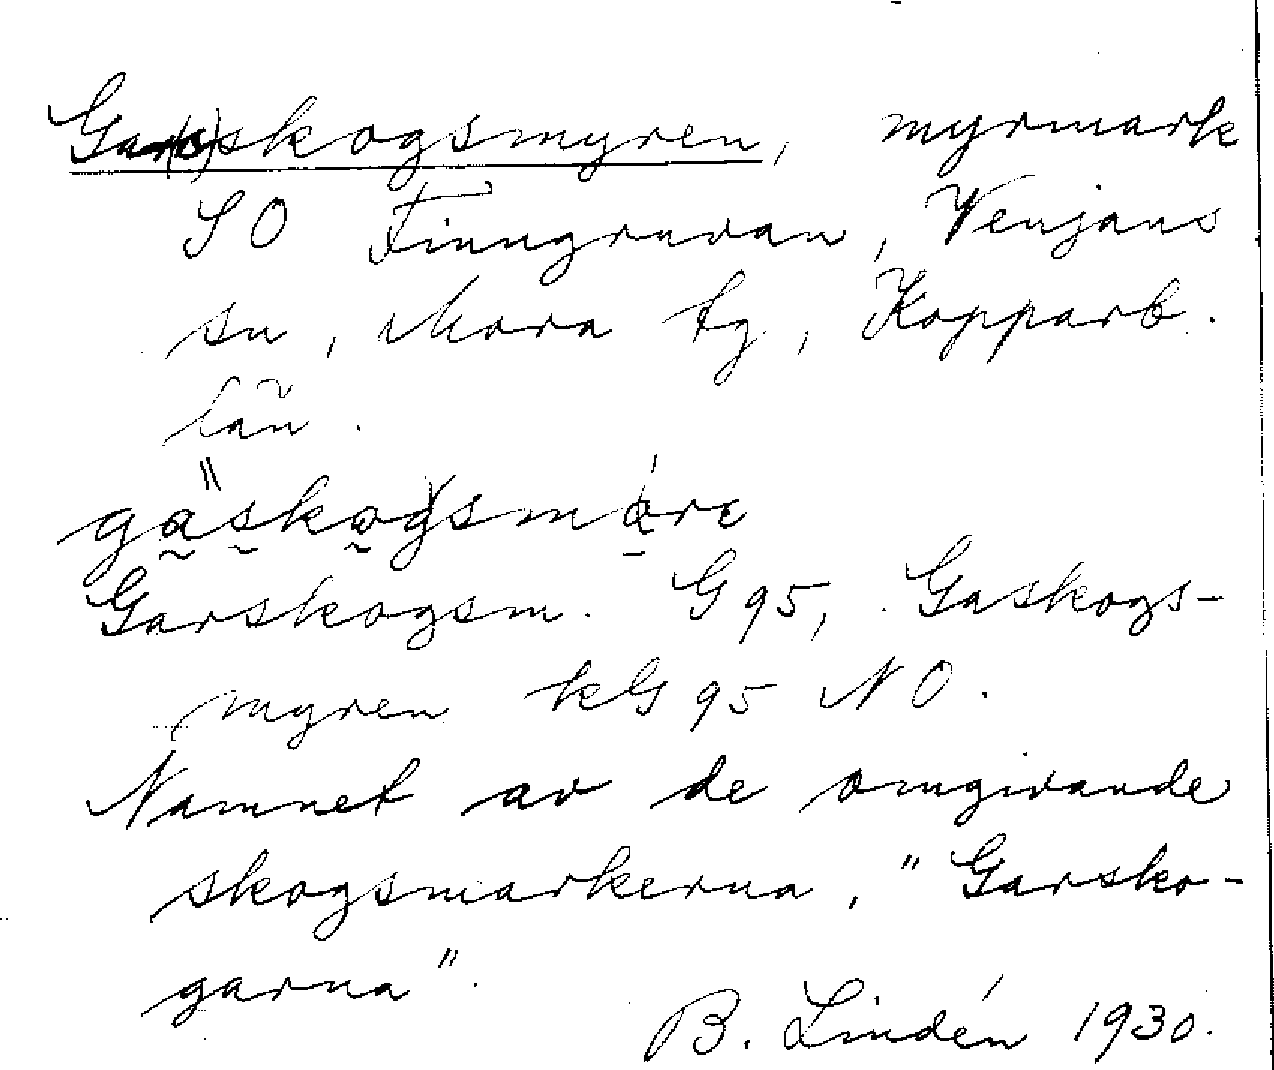 Gar(d)skogsmyren, myrmark
SO Finngruvan, Venjans
sn, Mora tg, Kopparb.
län.
gaskogsmöre
Garskogsm. G 95, Gaskogs-
myren kG 95 NO.
Namnet av de omgivande
skogsmarkerna, "Garsko-
garna".
B. Lindén 1930.